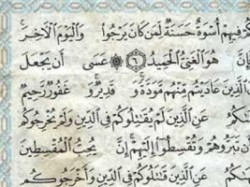 فِيهِمْ أُسْوَةٌ حَسَنَةٌ لِّمَن كَانَ يَرْجُوا۟ وَٱلْيَوْمَ ٱلْءَاخِرَ
هُوَ ٱلْغَنِىُّ ٱلْحَمِيدُ ٦ عَسَى أَن يَجْعَلَ
ٱلَّذِينَ عَادَيْتُم مِّنْهُم مَّوَدَّةً وَ قَدِيرٌ وَ غَفُورٌ رَّحِيمٌ
عَنِ ٱلَّذِينَ لَمْ يُقَٰتِلُوكُمْ فِى ٱلدِّينِ وَلَمْ يُخْرِجُوكُم
أَن تَبَرُّوهُمْ وَتُقْسِطُوٓا۟ إِلَيْهِمْ إِنَّ يُحِبُّ ٱلْمُقْسِطِينَ
عَنِ ٱلَّذِينَ قَٰتَلُوكُمْ فِى ٱلدِّينِ وَأَخْرَجُوكُم